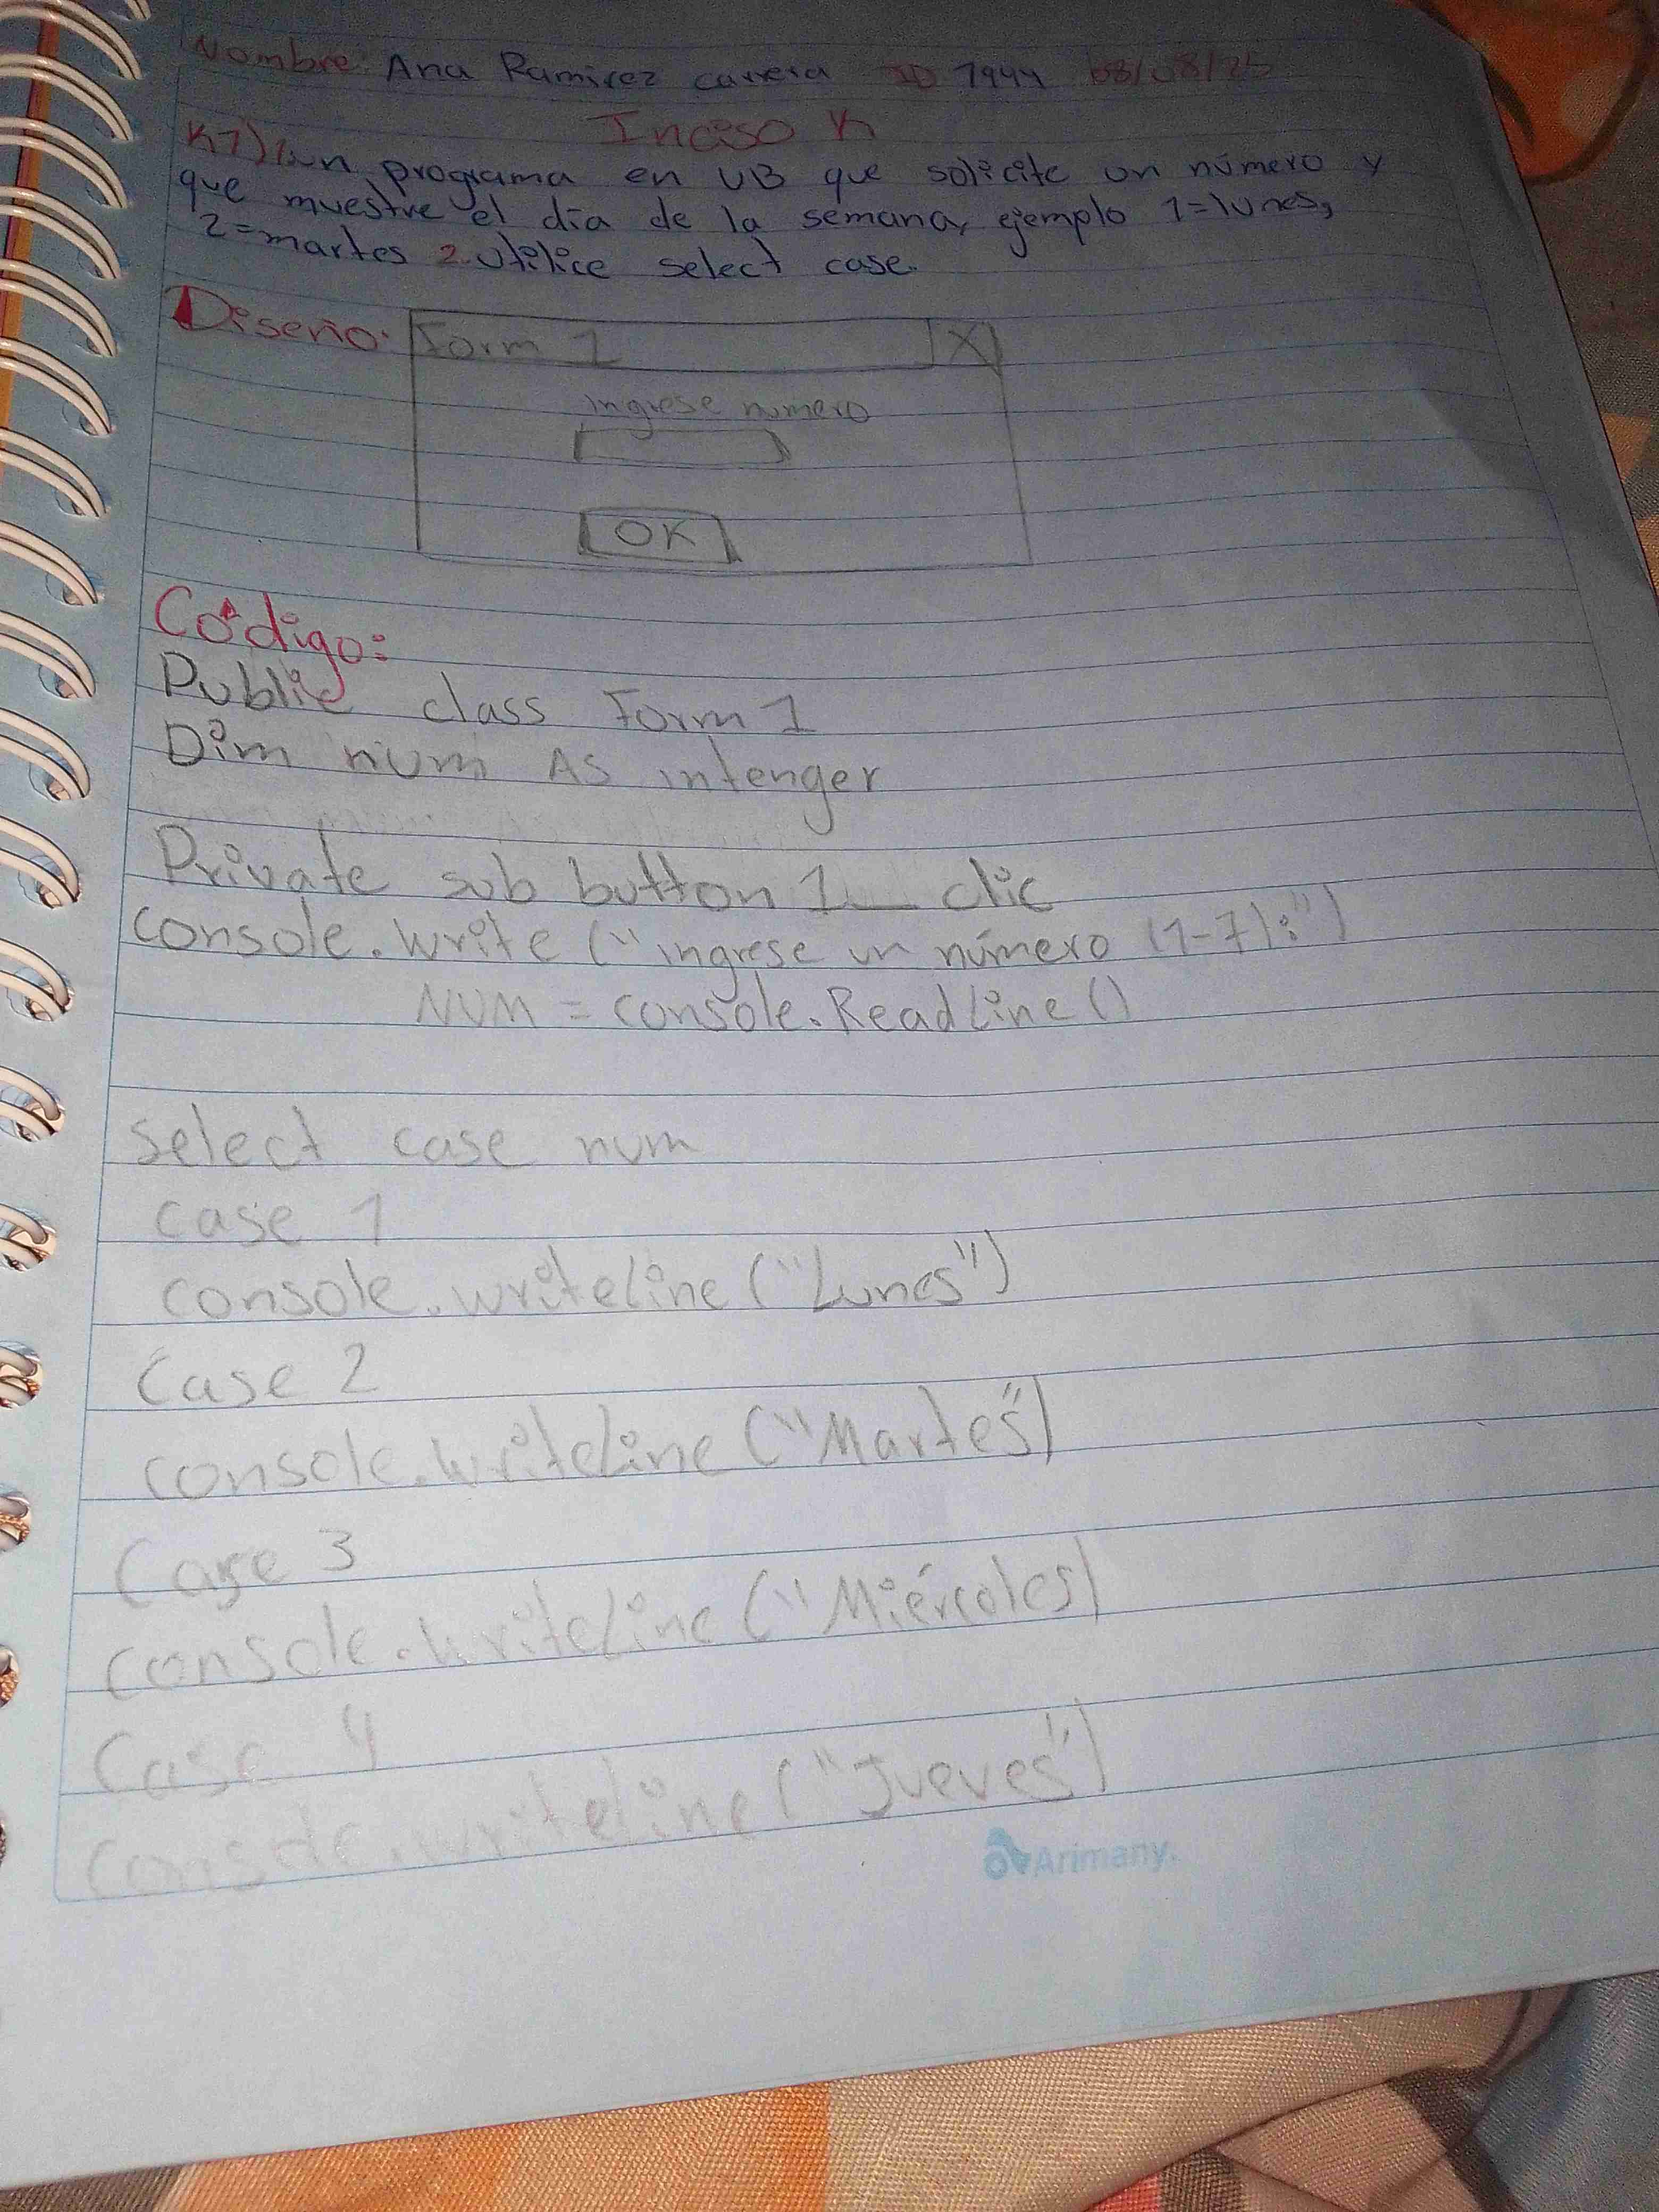 Nombre: Ana Ramirez carrera ID 7944 08/08/25
Inciso K
programa en UB que solicite un número y
que muestre el día de la semana, ejemplo 1=lunes,
2=martes 2. Utilice select case.
Diseño:
Form 1 X
ingrese numero
OK
Código:
Public class Form 1
Dim num As intenger
Private sub button 1_ clic
console.write ("ingrese un número (1-7):")
NUM = console.ReadLine()
select case num
case 1
console.writeline ("Lunes")
Case 2
console.writeline ("Martes")
Case 3
console.writeline ("Miércoles)
Case 4
console.writeline ("Jueves")
Arimany.